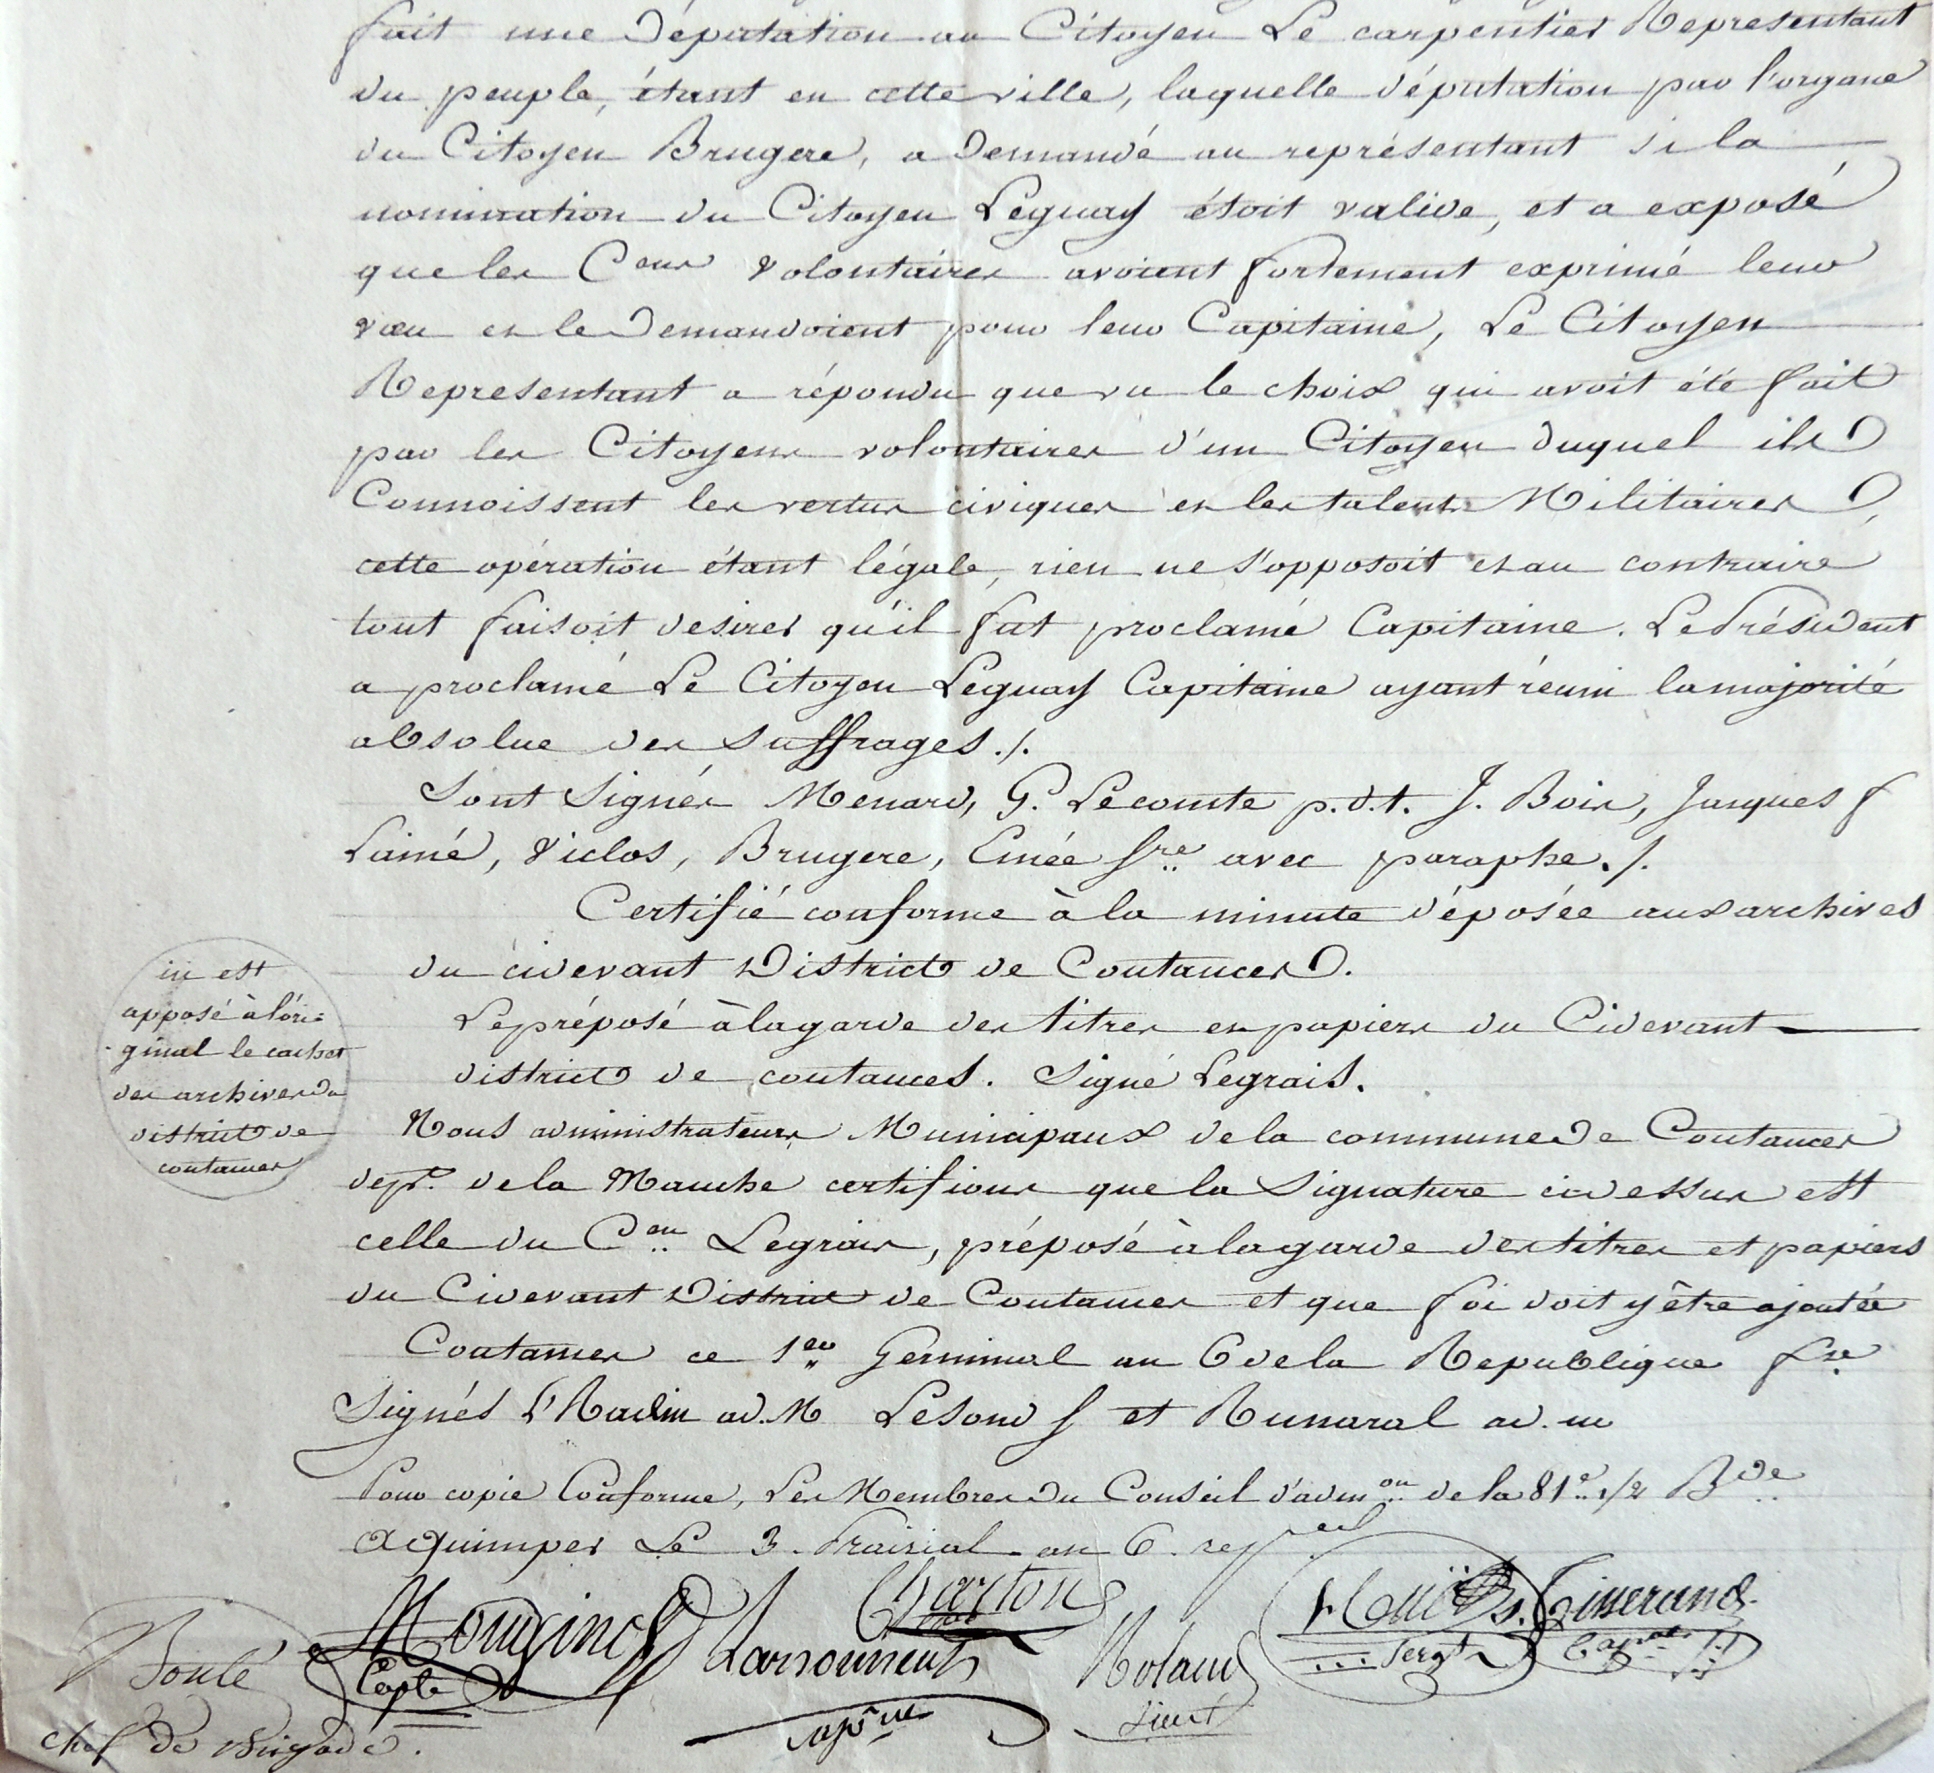 fait une Députation au Citoyen Le carpentier Representant
du peuple, étant en cette ville, laquelle députation par l'organe
du Citoyen Brugere, a Demandé au représentant si la
nomination du Citoyen Leguay étoit valide, et a exposé
que les Cens volontaires avoient fortement exprimé leur
vœu et le Demandoient pour leur Capitaine, Le Citoyen
Representant a répondu que vu le choix qui avoit été fait
par les Citoyens volontaires d'un Citoyen duquel ils
Connoissent les vertus civiques et les talents Militaires,
cette opération étant légale, rien ne s'opposoit et au contraire
tout faisoit desirer qu'il fut proclamé Capitaine. Le Président
a proclamé Le Citoyen Leguay Capitaine ayant réuni la majorité
absolue des suffrages ./.
Sont Signés Menard, G. Lecomte p.d.t. J. Bois, Jacques f
Lainé, Viclos, Brugere, Enée Sre avec paraphe ./.
Certifié conforme à la minute déposée aux archives
du cidevant District de Coutances.
Le préposé à la garde des titres et papiers du Cidevant
district de coutances. Signé Legrais.
ici est
apposé à l'ori=
ginal le cachet
des archives du
district de
coutances
Nous administrateurs Municipaux de la commune de Coutances
dept. de la Manche certifions que la Signature cidessus est
celle du Cen Legrais, préposé à la garde des titres et papiers
du Cidevant District de Coutances et que foi doit y être ajoutée
Coutances ce 1er Germinal an 6 de la Republique fse
Signés ad. M et ad. m
Pour copie Conforme, Les Membres du Conseil d'admon de la 81e 1/2 Bde
a Quimper Le 3. Prairial an 6. rep
Boulé
chef de Brigade.
Mougino
Capte
Charton
Larsonneur
Roland
Lieut
Sergt
Tisserand
Capne